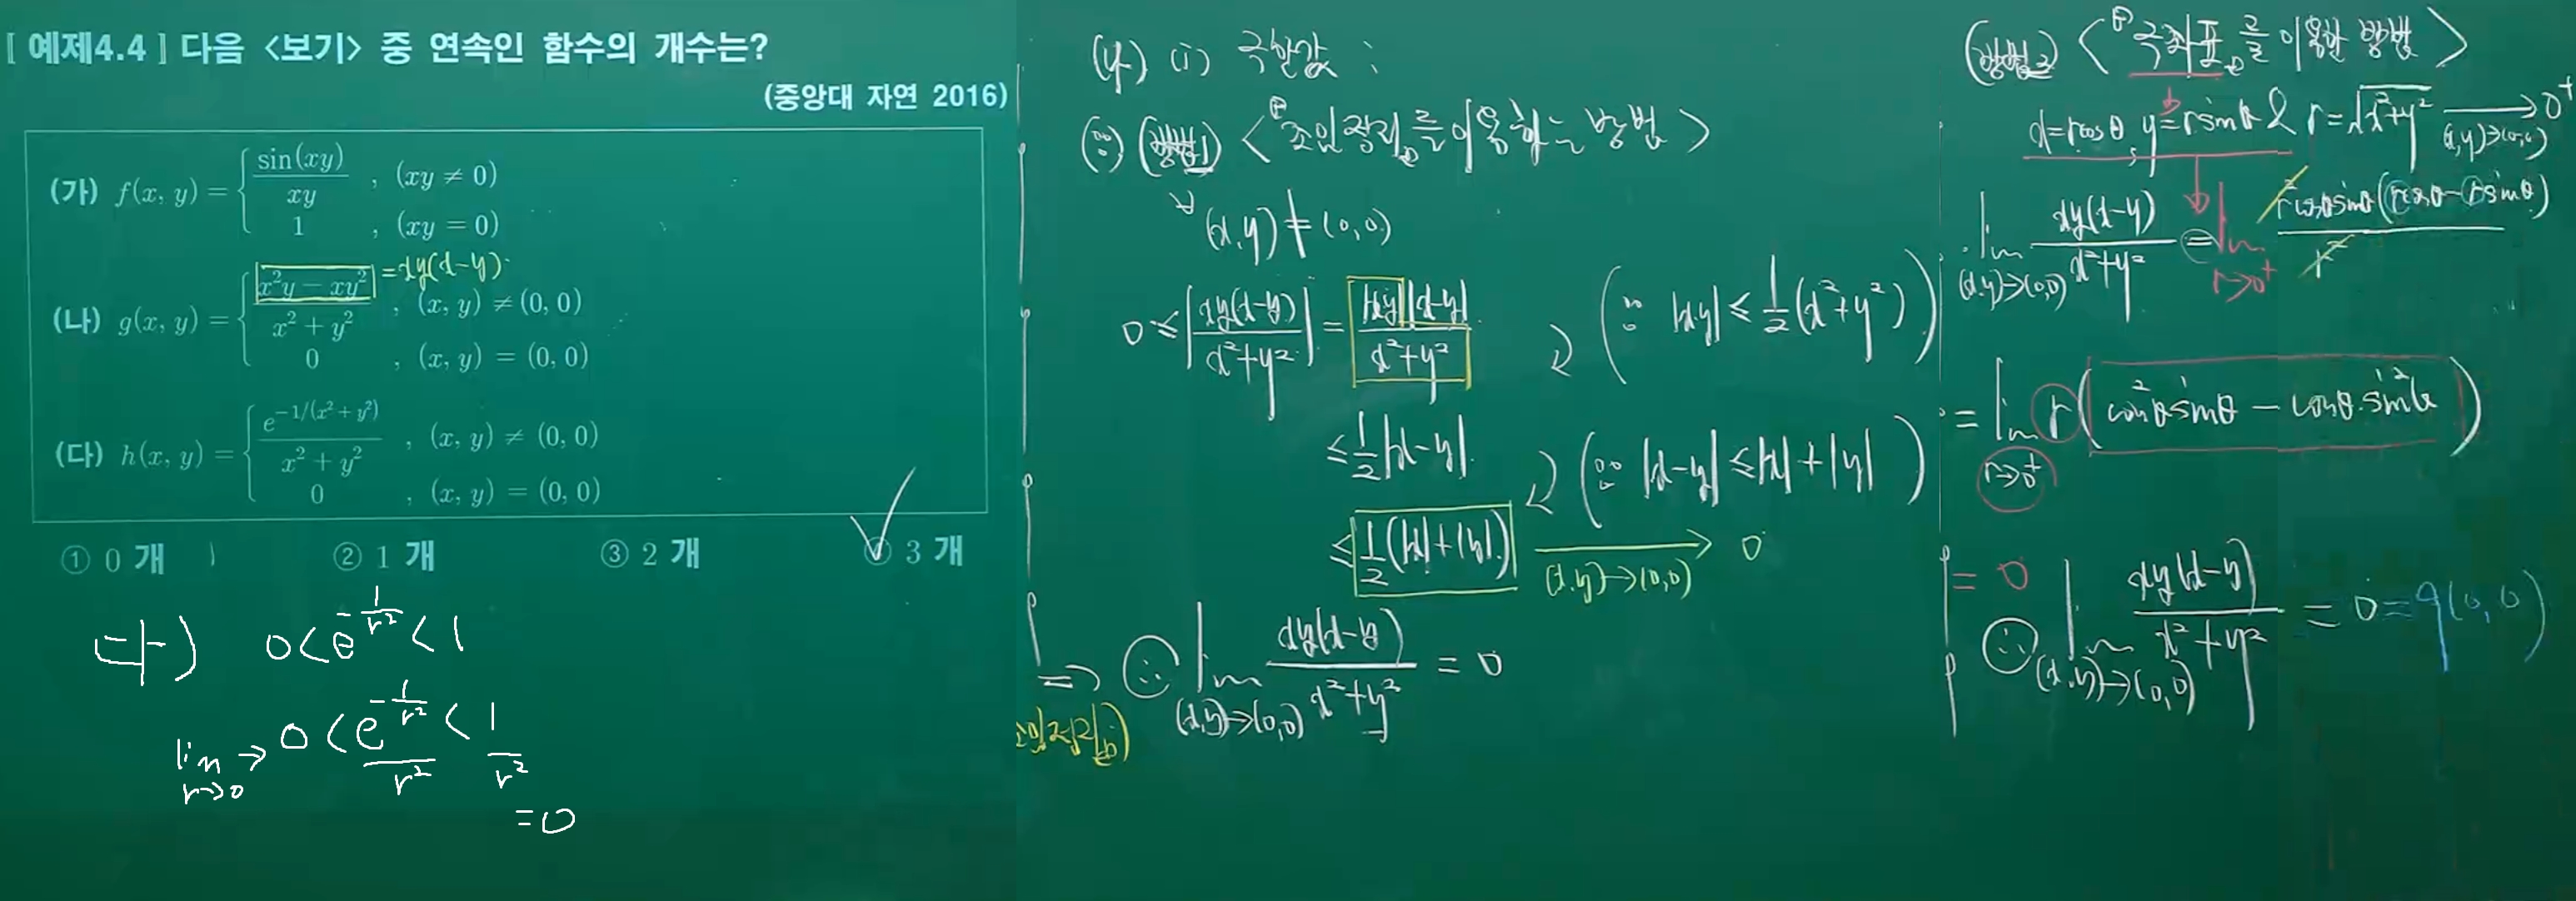 [ 예제4.4 ] 다음 <보기> 중 연속인 함수의 개수는?
(중앙대 자연 2016)
(가) f(x, y) = { sin(xy)/xy , (xy ≠ 0)
1 , (xy = 0)
(나) g(x, y) = { (x²y − xy²)/(x² + y²) , (x, y) ≠ (0, 0)
= xy(x-y)
0 , (x, y) = (0, 0)
(다) h(x, y) = { e^(−1/(x² + y²))/(x² + y²) , (x, y) ≠ (0, 0)
0 , (x, y) = (0, 0)
① 0 개 ② 1 개 ③ 2 개 ④ 3 개
다) 0 < e^(-1/r²) < 1
lim r→0 → 0 < e^(-1/r²)/r² < 1/r²
= 0
(나) (i) 극한값 :
(∵) (방법1) < 조임정리를 이용하는 방법 >
∀(x,y) ≠ (0,0)
0 ≤ |xy(x-y)/(x²+y²)| = |xy||x-y|/(x²+y²) (∵ |xy| ≤ 1/2(x²+y²))
≤ 1/2|x-y| (∵ |x-y| ≤ |x|+|y|)
≤ 1/2(|x|+|y|) → 0
(x,y)→(0,0)
⇒ ∴ lim (x,y)→(0,0) xy(x-y)/(x²+y²) = 0
(방법2) < 극좌표를 이용한 방법 >
x=rcosθ, y=rsinθ & r=√(x²+y²) → 0⁺
(x,y)→(0,0)
lim (x,y)→(0,0) xy(x-y)/(x²+y²) = lim r→0⁺ r²cosθsinθ(rcosθ-rsinθ)/r²
= lim r→0⁺ r(cos²θsinθ - cosθ·sin²θ)
= 0
∴ lim (x,y)→(0,0) xy(x-y)/(x²+y²) = 0 = g(0,0)